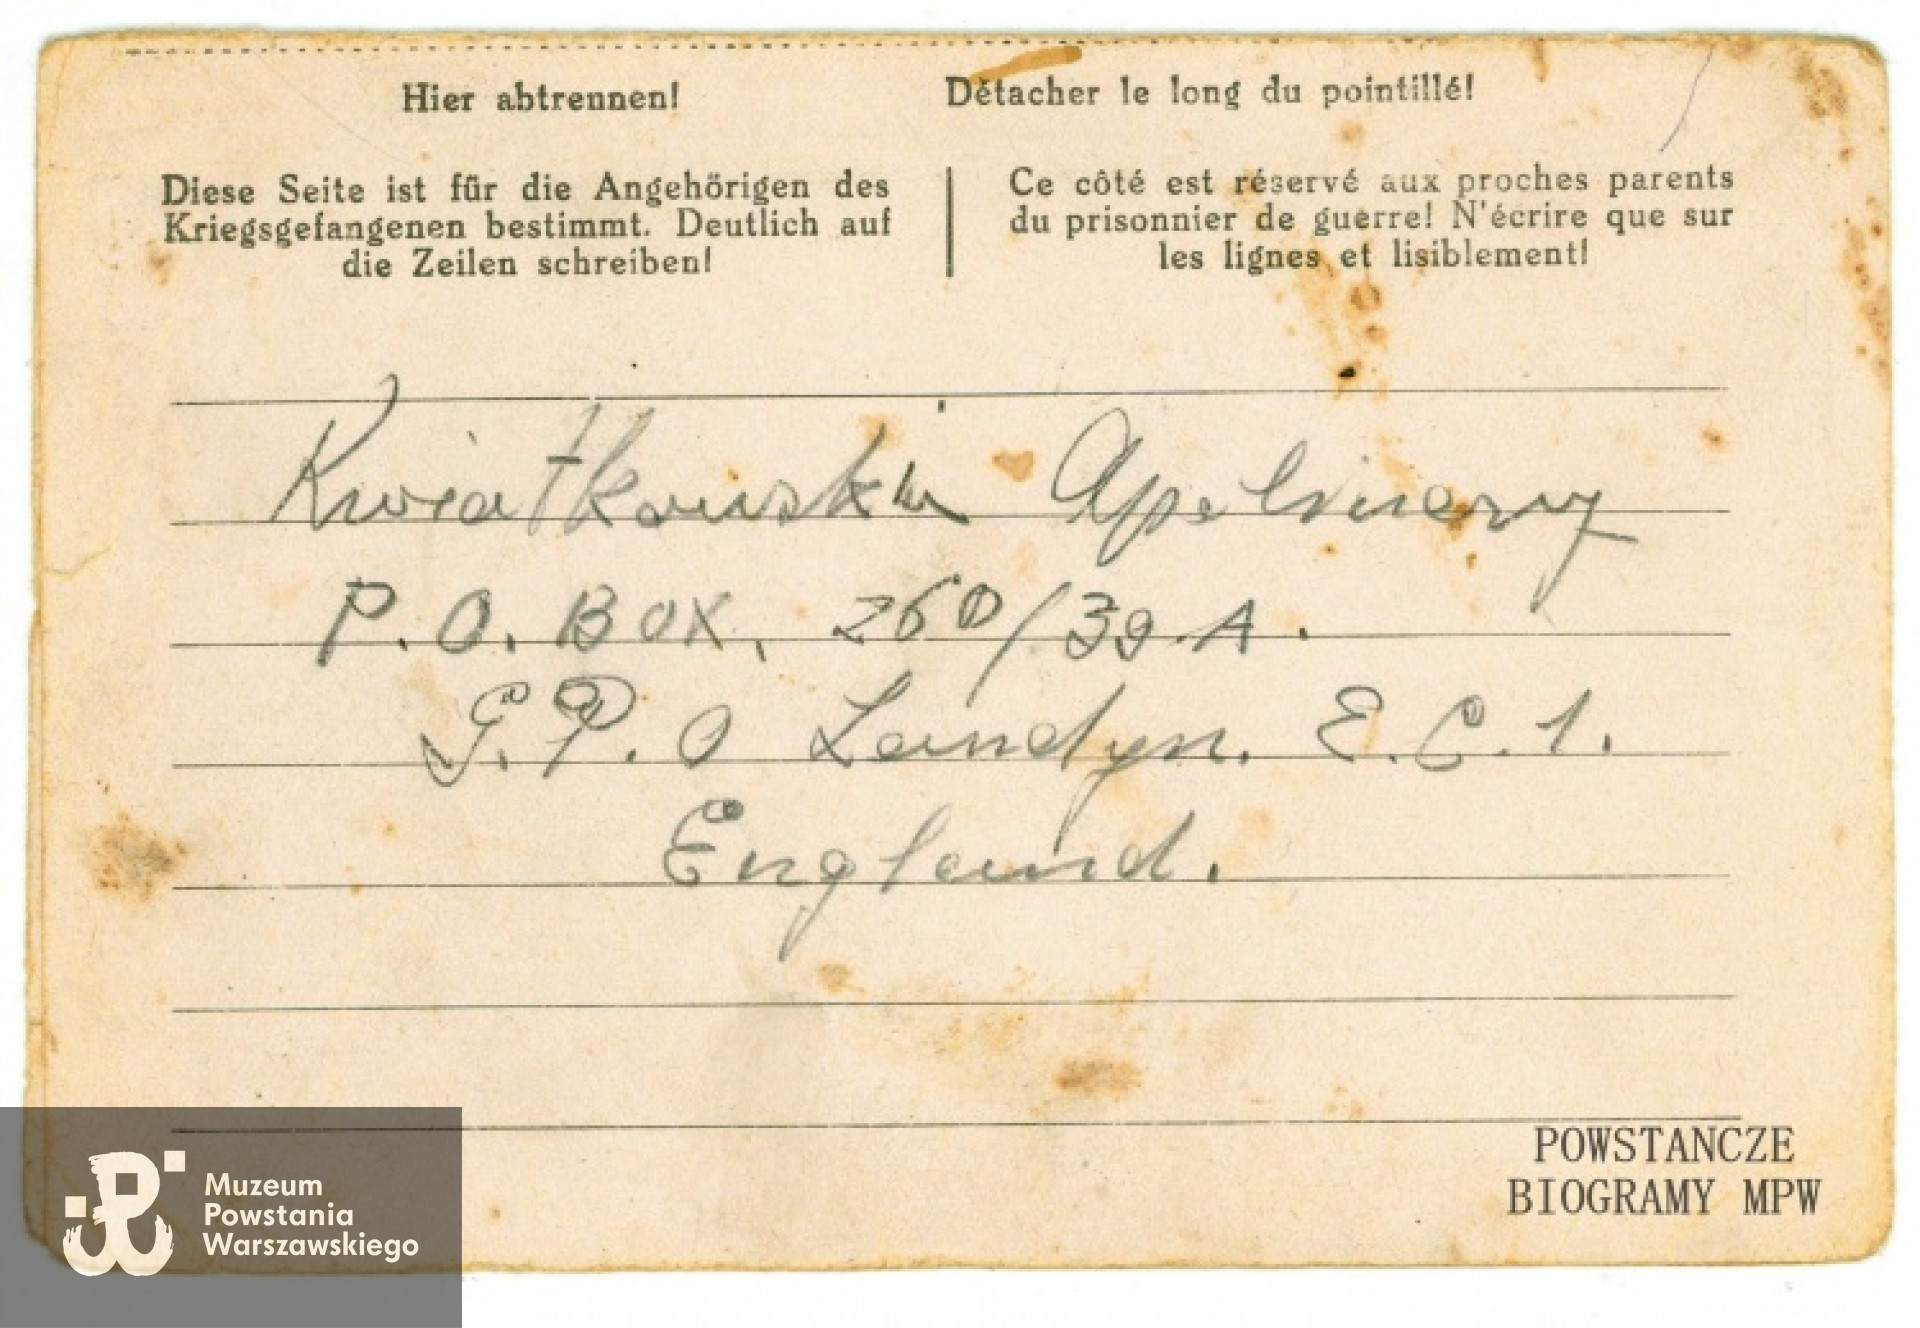 Hier abtrennen!
Détacher le long du pointillé!
Diese Seite ist für die Angehörigen des
Kriegsgefangenen bestimmt. Deutlich auf
die Zeilen schreiben!
Ce côté est réservé aux proches parents
du prisonnier de guerre! N'écrire que sur
les lignes et lisiblement!
Kwiatkowski Apolinary
P. O. Box, 260/39 A.
G. P. O Londyn. E. C. 1.
England.
Muzeum
Powstania
Warszawskiego
POWSTANCZE
BIOGRAMY MPW